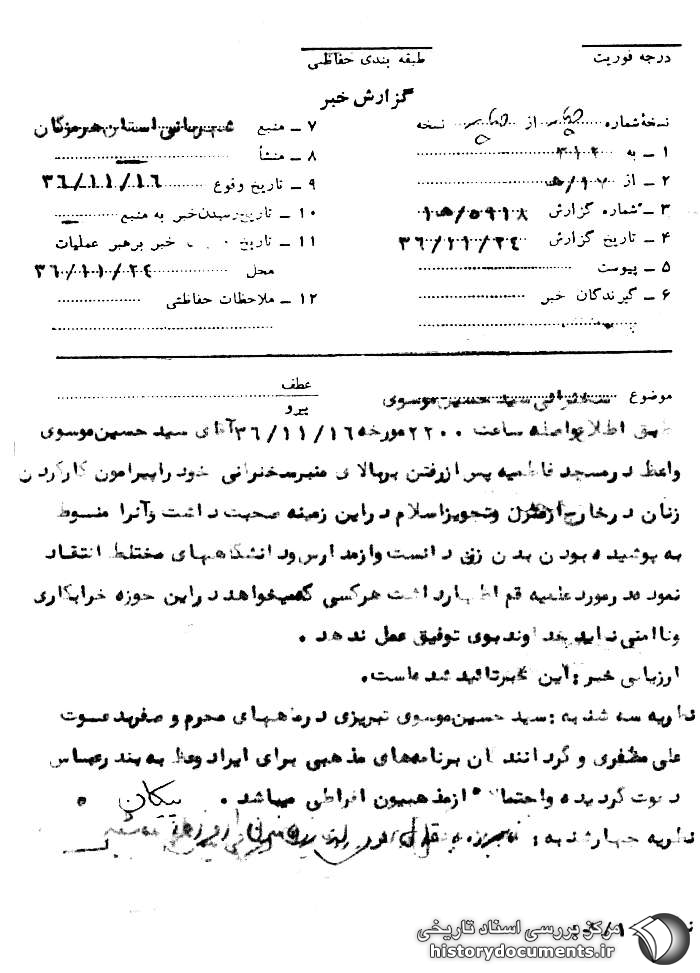 درجه فوریت
طبقه بندی حفاظتی
گزارش خبر
نسخهٔ شماره از نسخه
۱ ـ به ۳۱۲
۲ ـ از ۱۷/ﻫ
۳ ـ شماره گزارش ۵۹۱۸/ﻫ۱
۴ ـ تاریخ گزارش ۳۶/۱۱/۲۴
۵ ـ پیوست
۶ ـ گیرندگان خبر
۷ ـ منبع شهربانی استان هرمزگان
۸ ـ منشأ
۹ ـ تاریخ وقوع ۳۶/۱۱/۱۶
۱۰ ـ تاریخ رسیدن خبر به منبع
۱۱ ـ تاریخ خبر برهبر عملیات
محل ۳۶/۱۱/۲۴
۱۲ ـ ملاحظات حفاظتی
موضوع سخنرانی سید حسین موسوی
عطف
پیرو
طبق اطلاع واصله ساعت ۲۲۰۰ مورخه ۳۶/۱۱/۱۶ آقای سید حسین موسوی
واعظ در مسجد فاطمیه پس از رفتن بربالای منبر سخنرانی خود را پیرامون کارکردن
زنان در خارج از منزل و تجویز اسلام در این زمینه صحبت داشت و آنرا منسوط
به پوشیده بودن بدن زن دانست و از مدارس و دانشگاههای مختلط انتقاد
نمود در مورد علمیه قم اظهار داشت هرکسی که میخواهد در این حوزه خرابکاری
و ناامنی نماید خداوند بوی توفیق عمل ندهد .
ارزیابی خبر : این خبر تائید شده است.
نظریه سه شنبه : سید حسین موسوی تبریزی در ماههای محرم و صفر بدعوت
علی مظفری و گردانندگان برنامه‌های مذهبی برای ایراد وعظ به بندرعباس
دعوت گردیده و احتمالا" از مذهبیون افراطی میباشد . پیکان
نظریه چهارشنبه :
مرکز بررسی اسناد تاریخی
historydocuments.ir